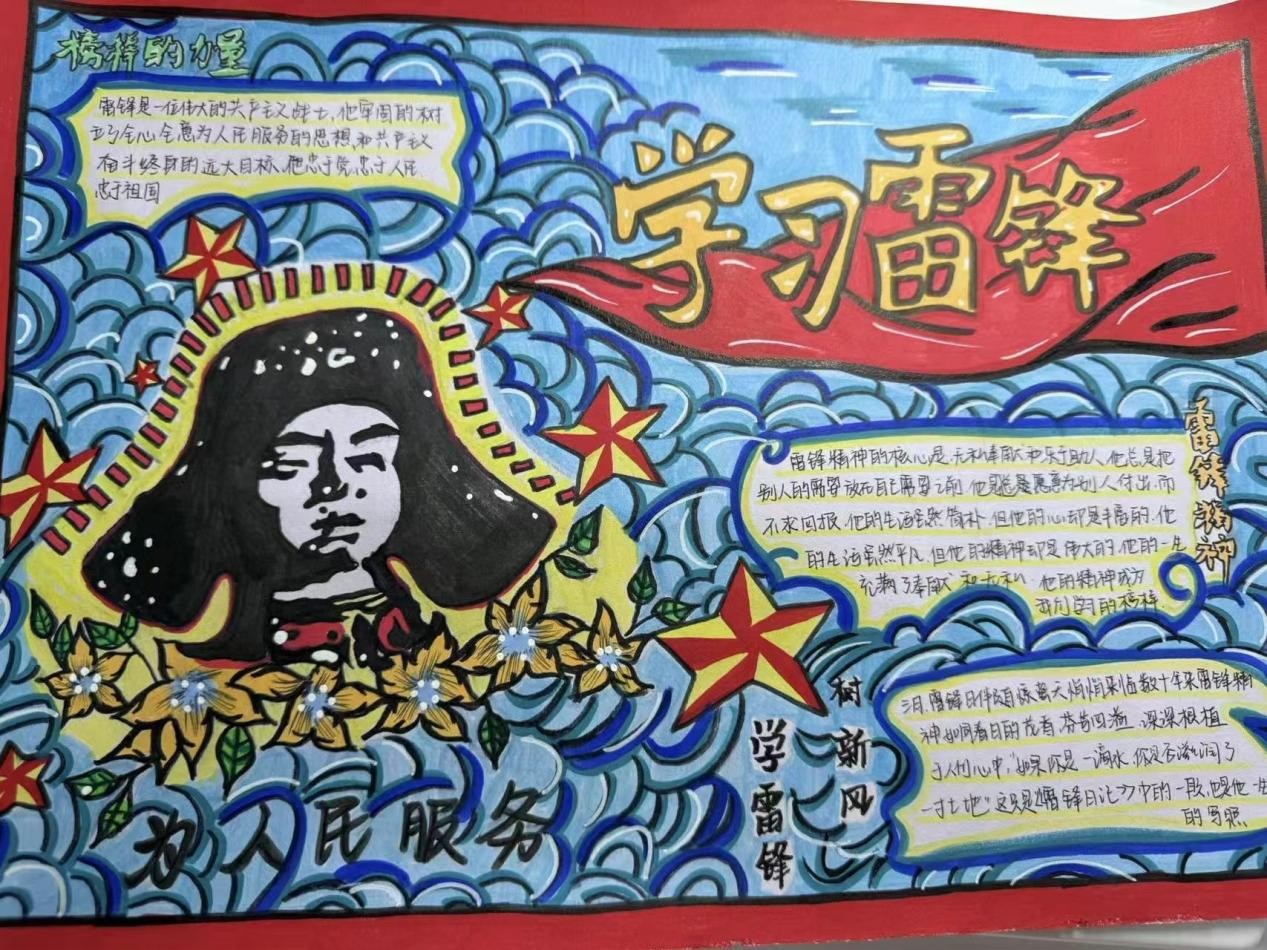 榜样的力量
雷锋是一位伟大的共产主义战士,他牢固的树
立了全心全意为人民服务的思想,和共产主义
奋斗终身的远大目标、他忠于党,忠于人民,
忠于祖国
学习雷锋
雷锋精神
雷锋精神的核心是无私奉献和乐于助人,他总是把
别人的需要放在自己需要之前,他总是愿意为别人付出,而
不求回报,他的生活虽然简朴,但他的心却是丰富的,他
的生活虽然平凡,但他的精神却是伟大的,他的一生
充满了奉献和无私,他的精神成为
我们学习的榜样.
三月,雷锋日伴随着惊蛰天悄悄来临,数十年来雷锋精
神如同春日的花香,芬芳四溢,深深根植
于人们心中,"如果你是一滴水,你是否滋润了
一寸土地"这只是《雷锋日记》中的一段,也是他一生
的写照
树新风
学雷锋
为人民服务